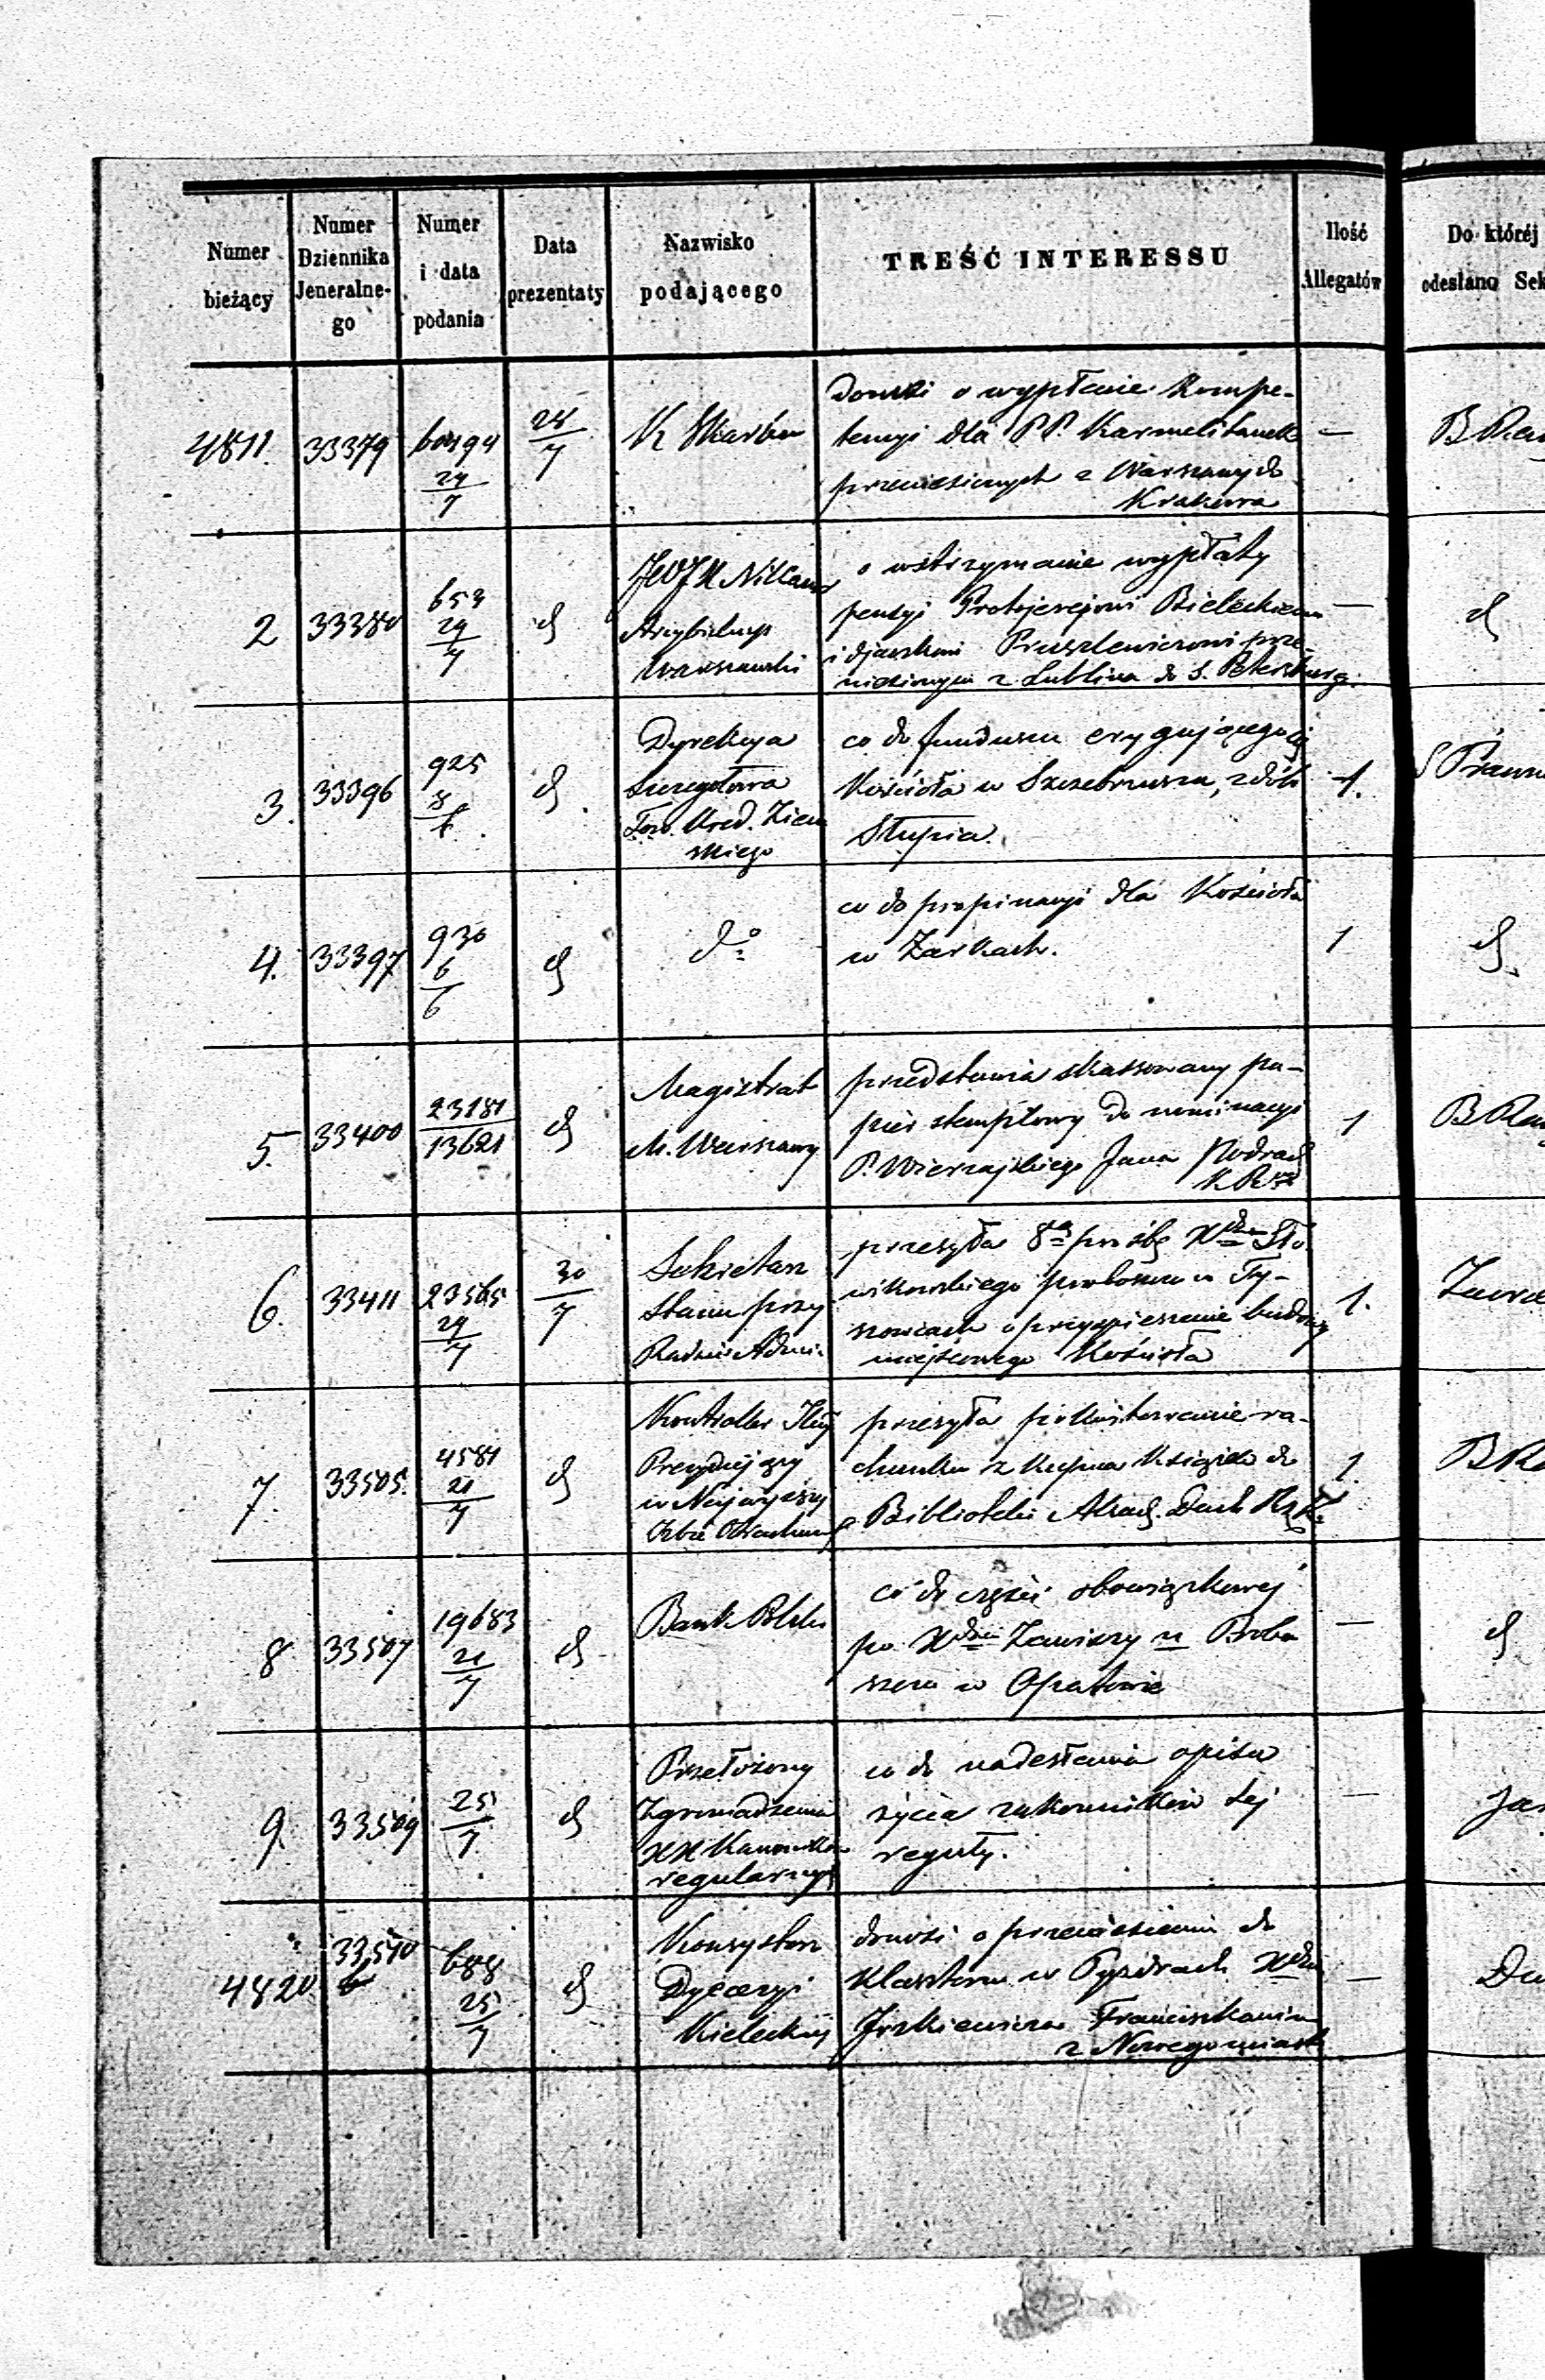 Numer bieżący | Numer Dziennika Jeneralnego | Numer i data podania | Data prezentaty | Nazwisko podającego | TREŚĆ INTERESSU | Ilość Allegatów | Do któréj odesłano Sek
4811. 33379 29/7 K Skarbu
Donosi o wypłacie Kompe-
tencyi dla P.P. Karmelitanek —
przeniesionych z Warszawy do
Krakowa
2 33380 653 29/7 d
Arcybiskup
Warszawski
o wstrzymanie wypłaty
pensyi Protojerejowi Bieleckiemu —
i djaczkowi prze-
niesionym z Lublina do S. Petersburg.
d
3. 33396 925 8/6 d
Dyrekcya
Szczegółowa
Tow. Kred. Ziem
skiego
co do funduszu erygującego się
Kościoła w z dóbr 1.
Słupia.
4. 33397 930 6/6 d dº
co do propinacyi dla Kościoła
w Żarkach. 1
d
5. 33400 23181/13621 d
Magistrat
M. Warszawy
przedstawia skassowany pa-
pier stemplowy do nominacyi 1
P. Wierzajskiego Jana
6. 33411 23565 29/7 30/7
Sekretarz
Stanu przy
Radzie Admi.
przesyła prośbę Xdza Sło-
wikowskiego proboszcza w Ty-
szowcach o przyspieszenie budowy 1.
miejscowego Kościoła
7. 33505. 4581 21/7 d
Kontroller
Prezydujący
w Najwyższej
Izbie Obrachunk
przesyła pokwitowanie ra-
chunku z kupna Książek do 1.
Biblioteki Akad. Duch Rz K.
8 33507 19683 21/7 d
Bank Polski
co do części obowiązkowej
po Xdzu Zawiszy Probo —
szczu w Opatowie
d
9. 33509 25/7 d
Przełożony
Zgromadzenia
XX Kanoników
regularnych
co do nadesłania opisu
życia zakonników tej —
reguły.
4820 33510 688 25/7 d
Konsystorz
Dyecezyi
Kieleckiej
donosi o przeniesieniu do
Klasztoru w Pyzdrach Xdza —
Jozkiewicza Franciszkanina
z Nowegomiasta